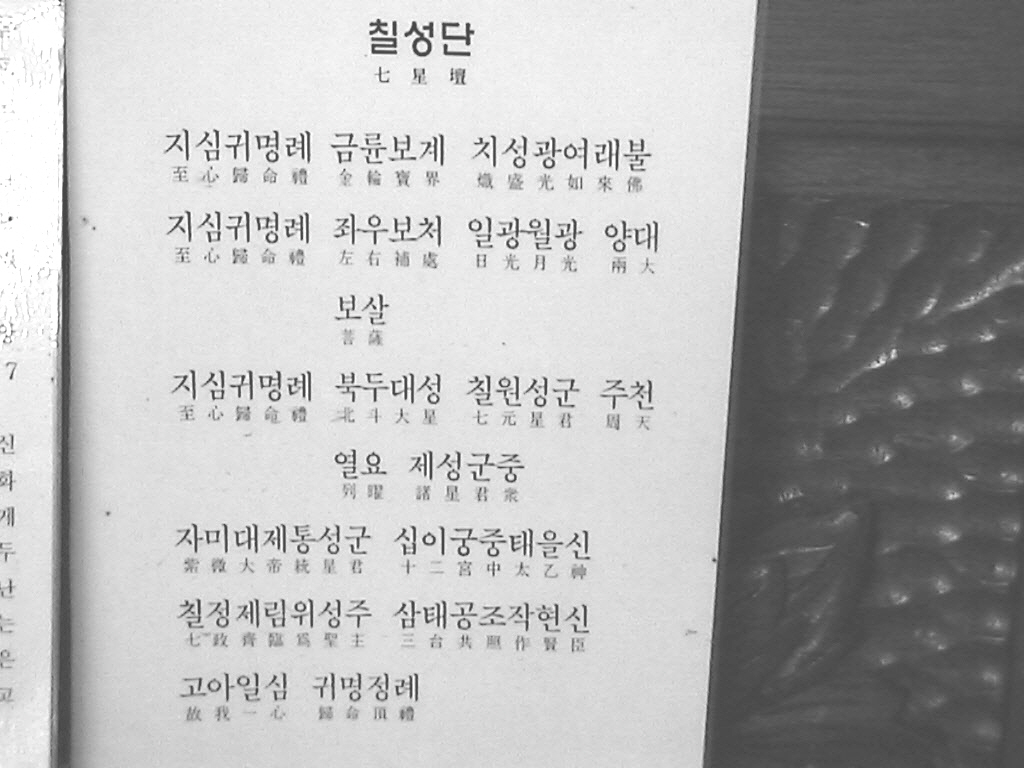 칠성단
七星壇
지심귀명례 금륜보계 치성광여래불
至心歸命禮 金輪寶界 熾盛光如來佛
지심귀명례 좌우보처 일광월광 양대
至心歸命禮 左右補處 日光月光 兩大
보살
菩薩
지심귀명례 북두대성 칠원성군 주천
至心歸命禮 北斗大星 七元星君 周天
열요 제성군중
列曜 諸星君衆
자미대제통성군 십이궁중태을신
紫微大帝統星君 十二宮中太乙神
칠정제림위성주 삼태공조작현신
七政齊臨爲聖主 三台共照作賢臣
고아일심 귀명정례
故我一心 歸命頂禮
양
7
신
화
게
두
난
는
은
고